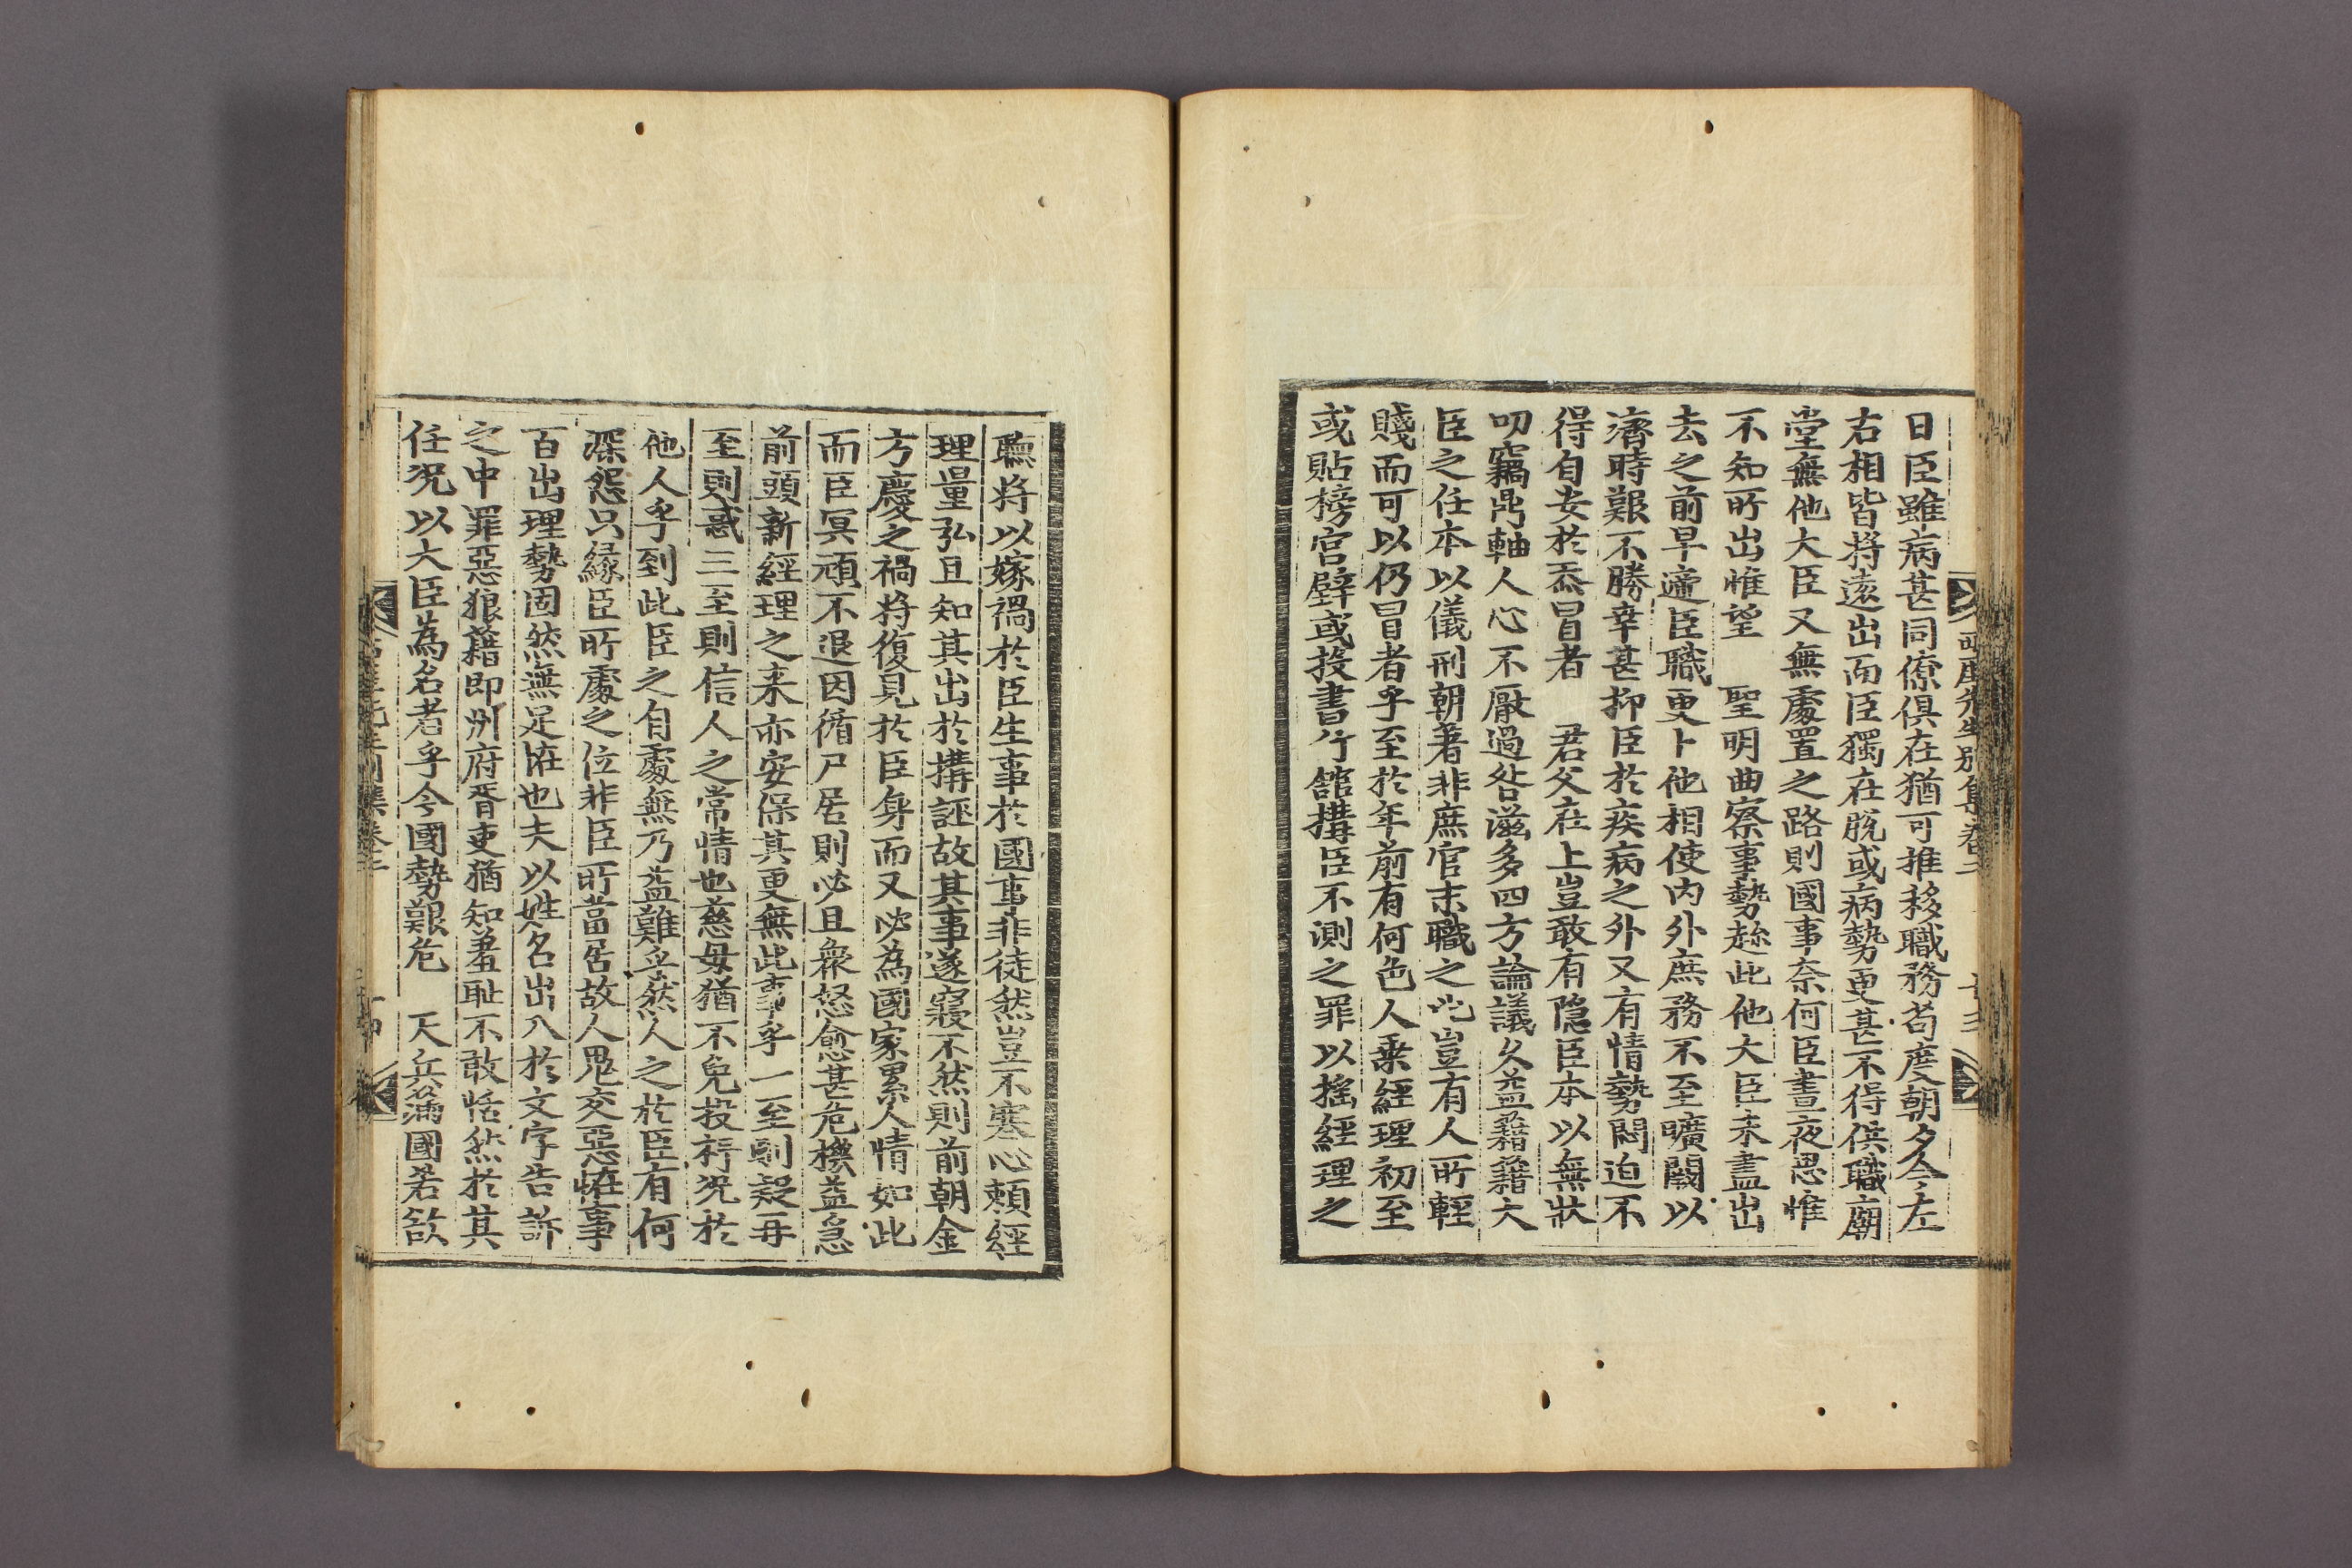 日臣雖病甚同僚俱在猶可推移職務苟度朝夕今左
右相皆將遠出而臣獨在脫或病勢更甚不得供職廟
堂無他大臣又無處置之路則國事奈何臣晝夜思惟
不知所出惟望 聖明曲察事勢趁此他大臣未盡出
去之前早遞臣職更卜他相使內外庶務不至曠闕以
濟時艱不勝幸甚抑臣於疾病之外又有情勢悶迫不
得自安於忝冒者 君父在上豈敢有隱臣本以無狀
叨竊鼎軸人心不厭過咎滋多四方論議久益藉藉大
臣之任本以儀刑朝著非庶官末職之比豈有人所輕
賤而可以仍冒者乎至於年前有何色人乘經理初至
或貼榜宮壁或投書行館搆臣不測之罪以搖經理之
聽將以嫁禍於臣生事於國事非徒然豈不寒心頼經
理量弘且知其出於搆誣故其事遂寢不然則前朝金
方慶之禍將復見於臣身而又必為國家累人情如此
而臣冥頑不退因循尸居則必且衆怒愈甚危機益急
前頭新經理之来亦安保其更無此事乎一至則疑再
至則惑三至則信人之常情也慈母猶不免投杼况於
他人乎到此臣之自處無乃益難乎然人之於臣有何
深怨只緣臣所處之位非臣所當居故人鬼交惡恠事
百出理勢固然無足恠也夫以姓名出入於文字告訴
之中罪惡狼藉即州府胥吏猶知羞耻不敢恬然於其
任况以大臣為名者乎今國勢艱危 天兵滿國若欲